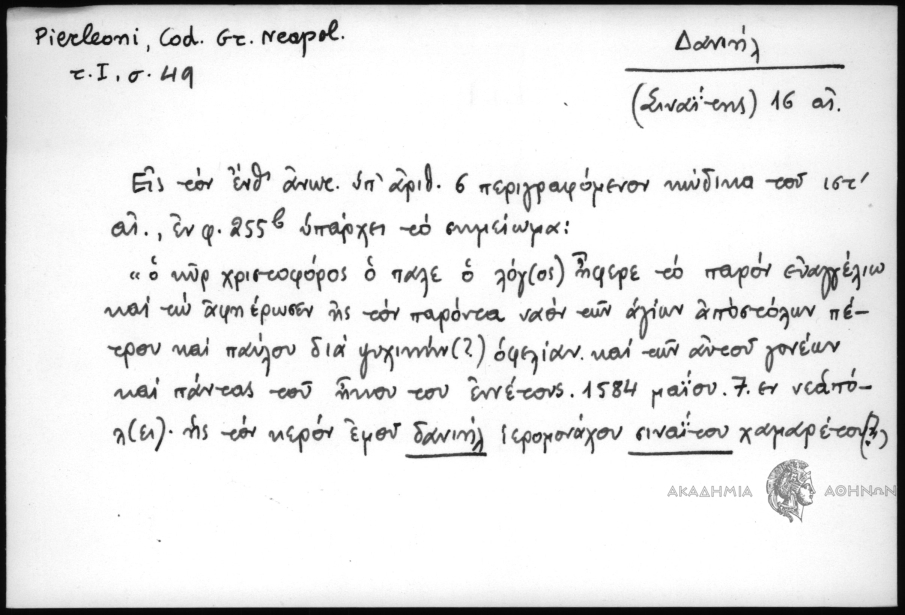 Pierleoni, Cod. Gr. Neapol.
τ. I, σ. 49
Δανιήλ
(Σιναΐτης) 16 αἰ.
Εἰς τὸν ἔνθ' ἀνωτ. ὑπ' ἀριθ. 6 περιγραφόμενον κώδικα τοῦ ιστ'
αἰ., ἐν φ. 255b ὑπάρχει τὸ σημείωμα:
«ὁ κῦρ χριστοφόρος ὁ παλε ὁ λόγ(ος) ἤφερε τὸ παρὸν εὐαγγέλιω
καὶ τὼ ἀφηέρωσεν ἠς τὸν παρόντα ναὸν τῶν ἁγίων ἀποστόλων πέ-
τρου καὶ παύλου διὰ ψυχικήν(?) ὀφελίαν. καὶ τῶν αὐτοῦ γονέων
καὶ πάντας τοῦ ἤκου του ἐνέτους. 1584 μαΐου. 7. εν νεάπό-
λ(ει). ἠς τὸν κερὸν ἐμοῦ δανιήλ ἱερομονάχου σιναΐτου χαμαρέτου(?)
ΑΚΑΔΗΜΙΑ ΑΘΗΝΩΝ